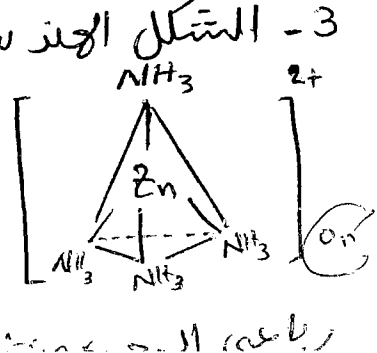 3 - الشكل الهند
NH3
2+
Zn
NH3
NH3
NH3
رباعي